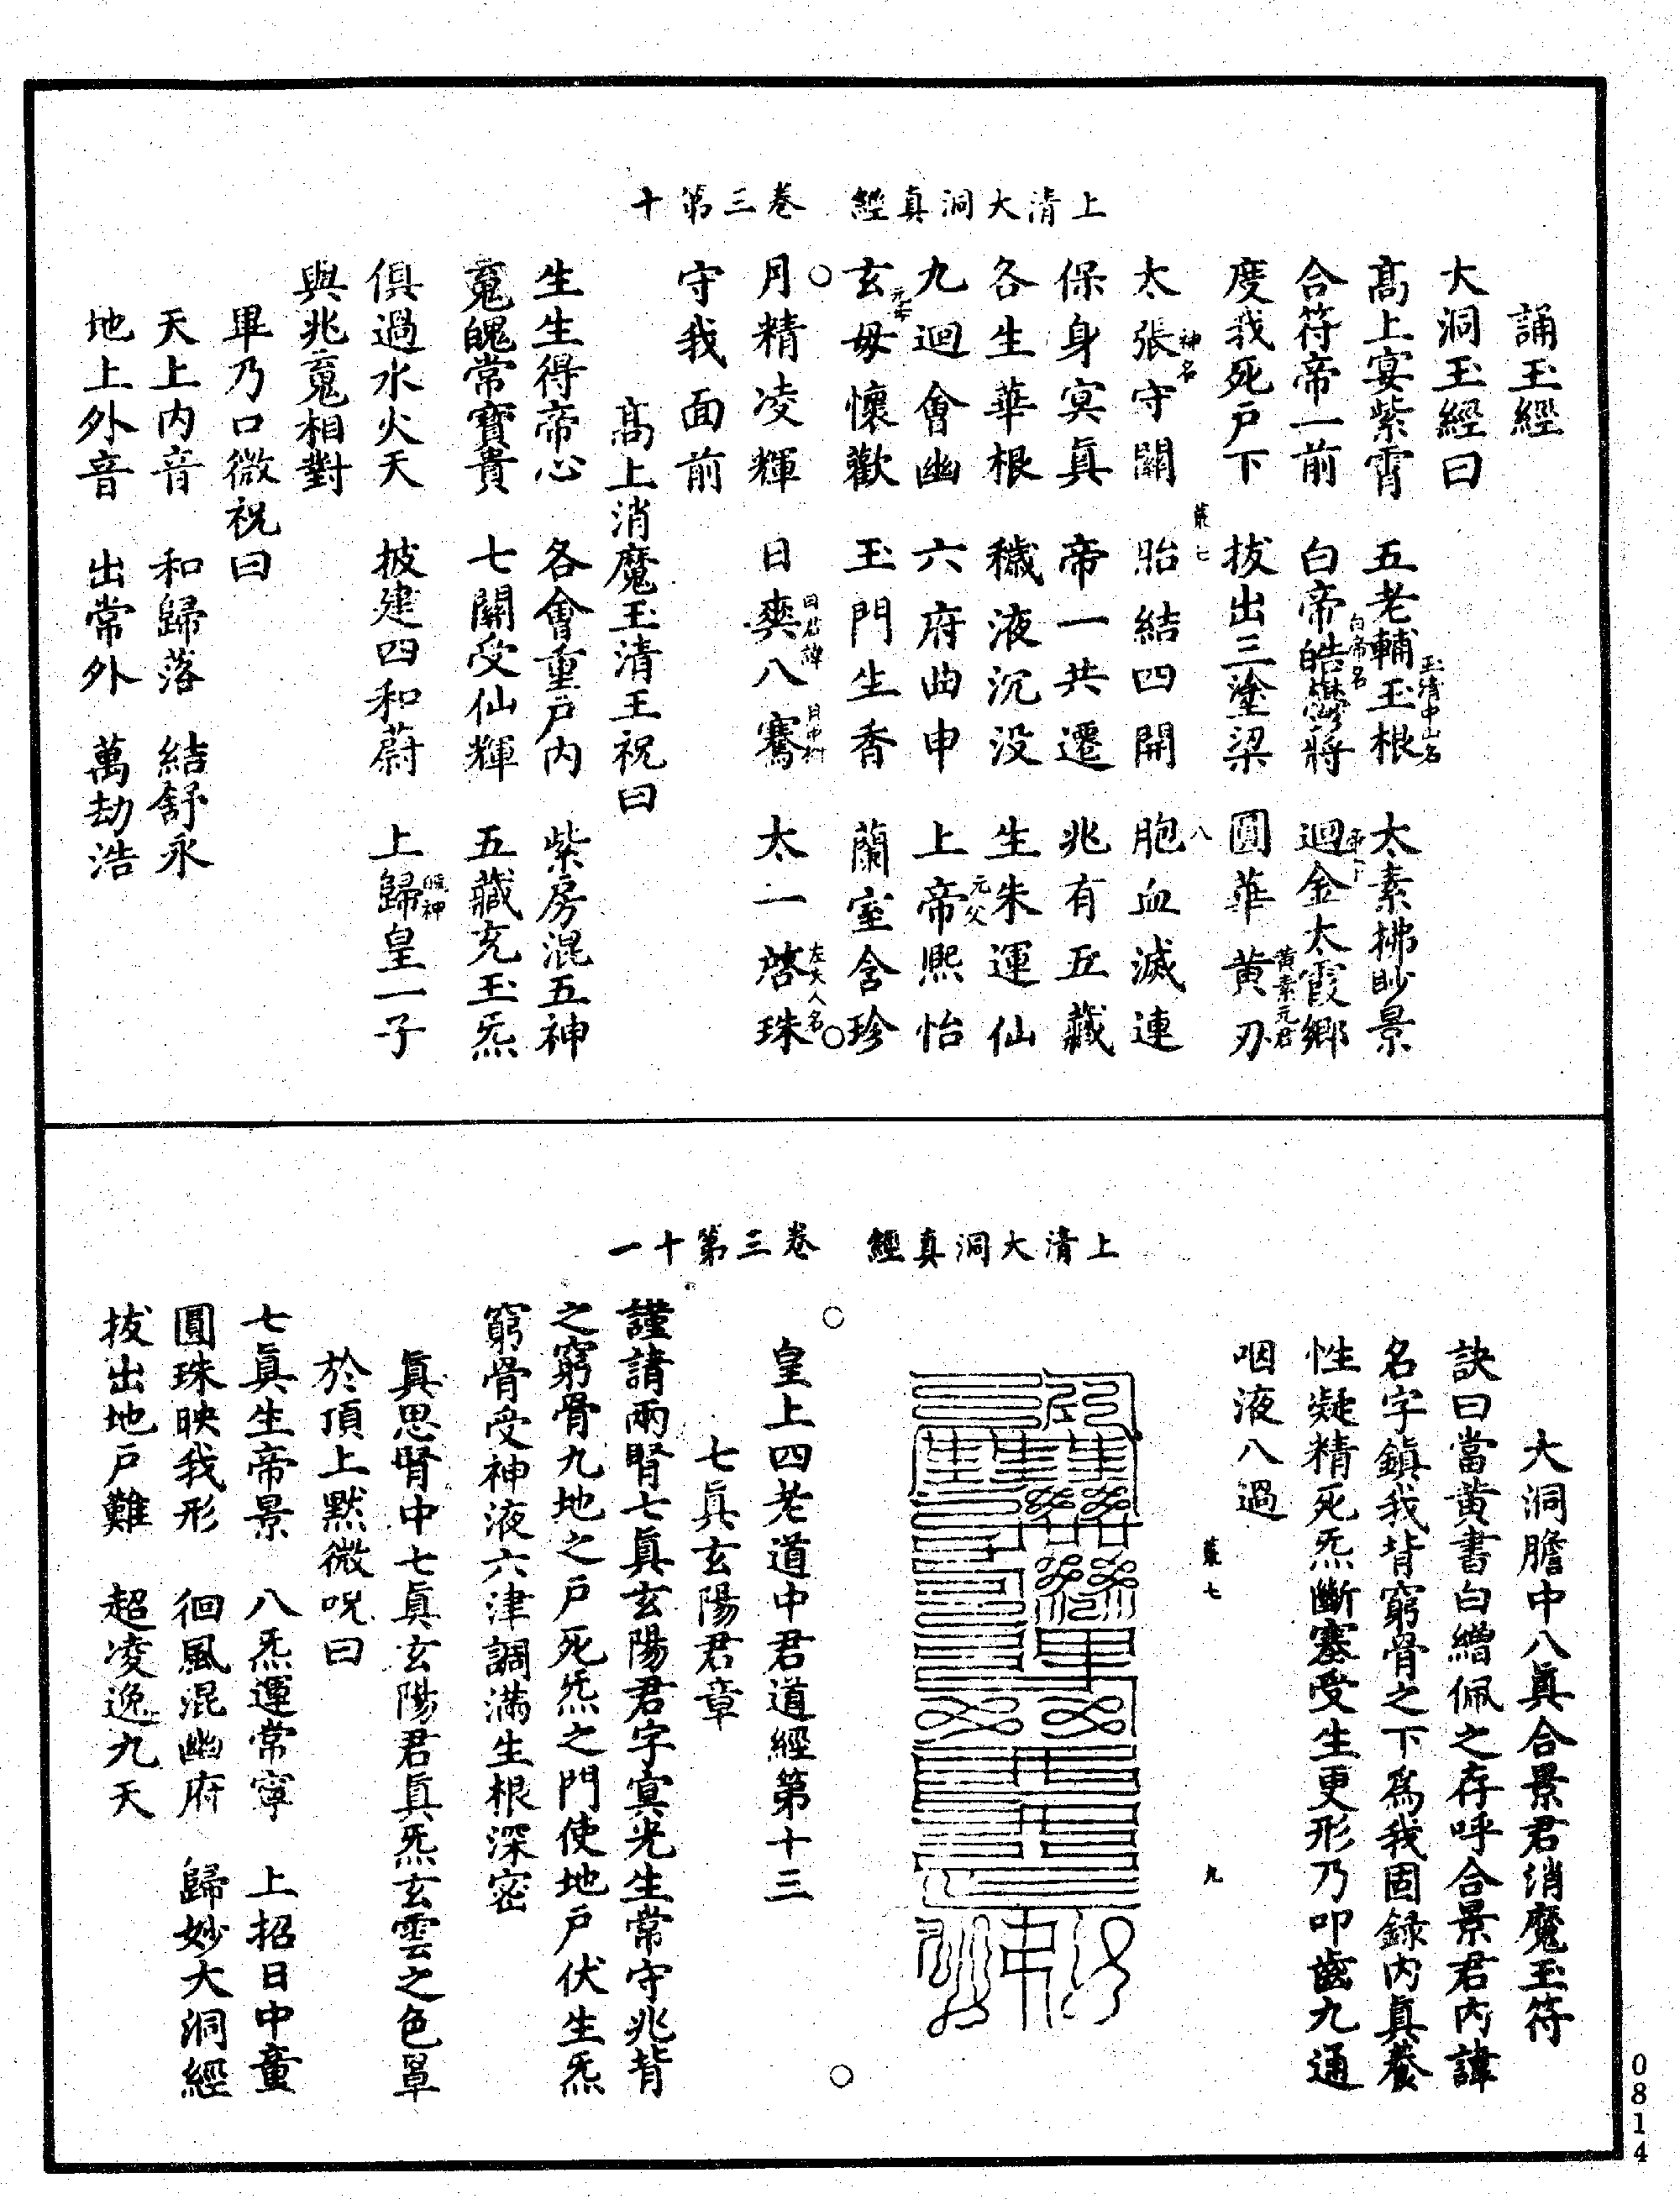 上清大洞真經　卷三第十
誦玉經
大洞玉經曰
高上宴紫霄　五老輔玉根　太素拂眇景
玉清中山名
合符帝一前　白帝皓鬱將　迴金太霞鄉
白帝名
度我死戶下　拔出三塗梁　圓華黃刃
黃素元君
太張守關　胎結四開　胞血滅連
神名
羲七　八
保身冥真　帝一共遷　兆有五藏
各生華根　穢液沉没　生朱運仙
九迴會幽　六府曲申　上帝熙怡
元父
玄母懷歡　玉門生香　蘭室含珍
元母
月精凌輝　日奕八騫　太一啓珠
日君諱　左大人名
守我面前
高上消魔玉清王祝曰
生生得帝心　各會重戶内　紫房混五神
䰟魄常寶貴　七關受仙輝　五藏充玉炁
俱過水火天　披建四和蔚　上歸皇一子
與兆䰟相對
畢乃口微祝曰
天上内音　和歸落　結舒永
地上外音　出常外　萬劫浩
上清大洞真經　卷三第十一
大洞膽中八真合景君消魔玉符
訣曰當黃書白繒佩之存呼合景君内諱
名字鎮我背窮骨之下爲我固録内真養
性凝精死炁斷塞受生更形乃叩齒九通
咽液八過
七　九
皇上四老道中君道經第十三
七真玄陽君章
謹請兩腎七真玄陽君字冥光生常守兆背
之窮骨九地之戶死炁之門使地戶伏生炁
窮骨受神液六津調滿生根深密
真思腎中七真玄陽君真炁玄雲之色罩
於頂上默微呪曰
七真生帝景　八炁運常寧　上招日中童
圓珠映我形　徊風混幽府　歸妙大洞經
拔出地戶難　超凌逸九天
0814